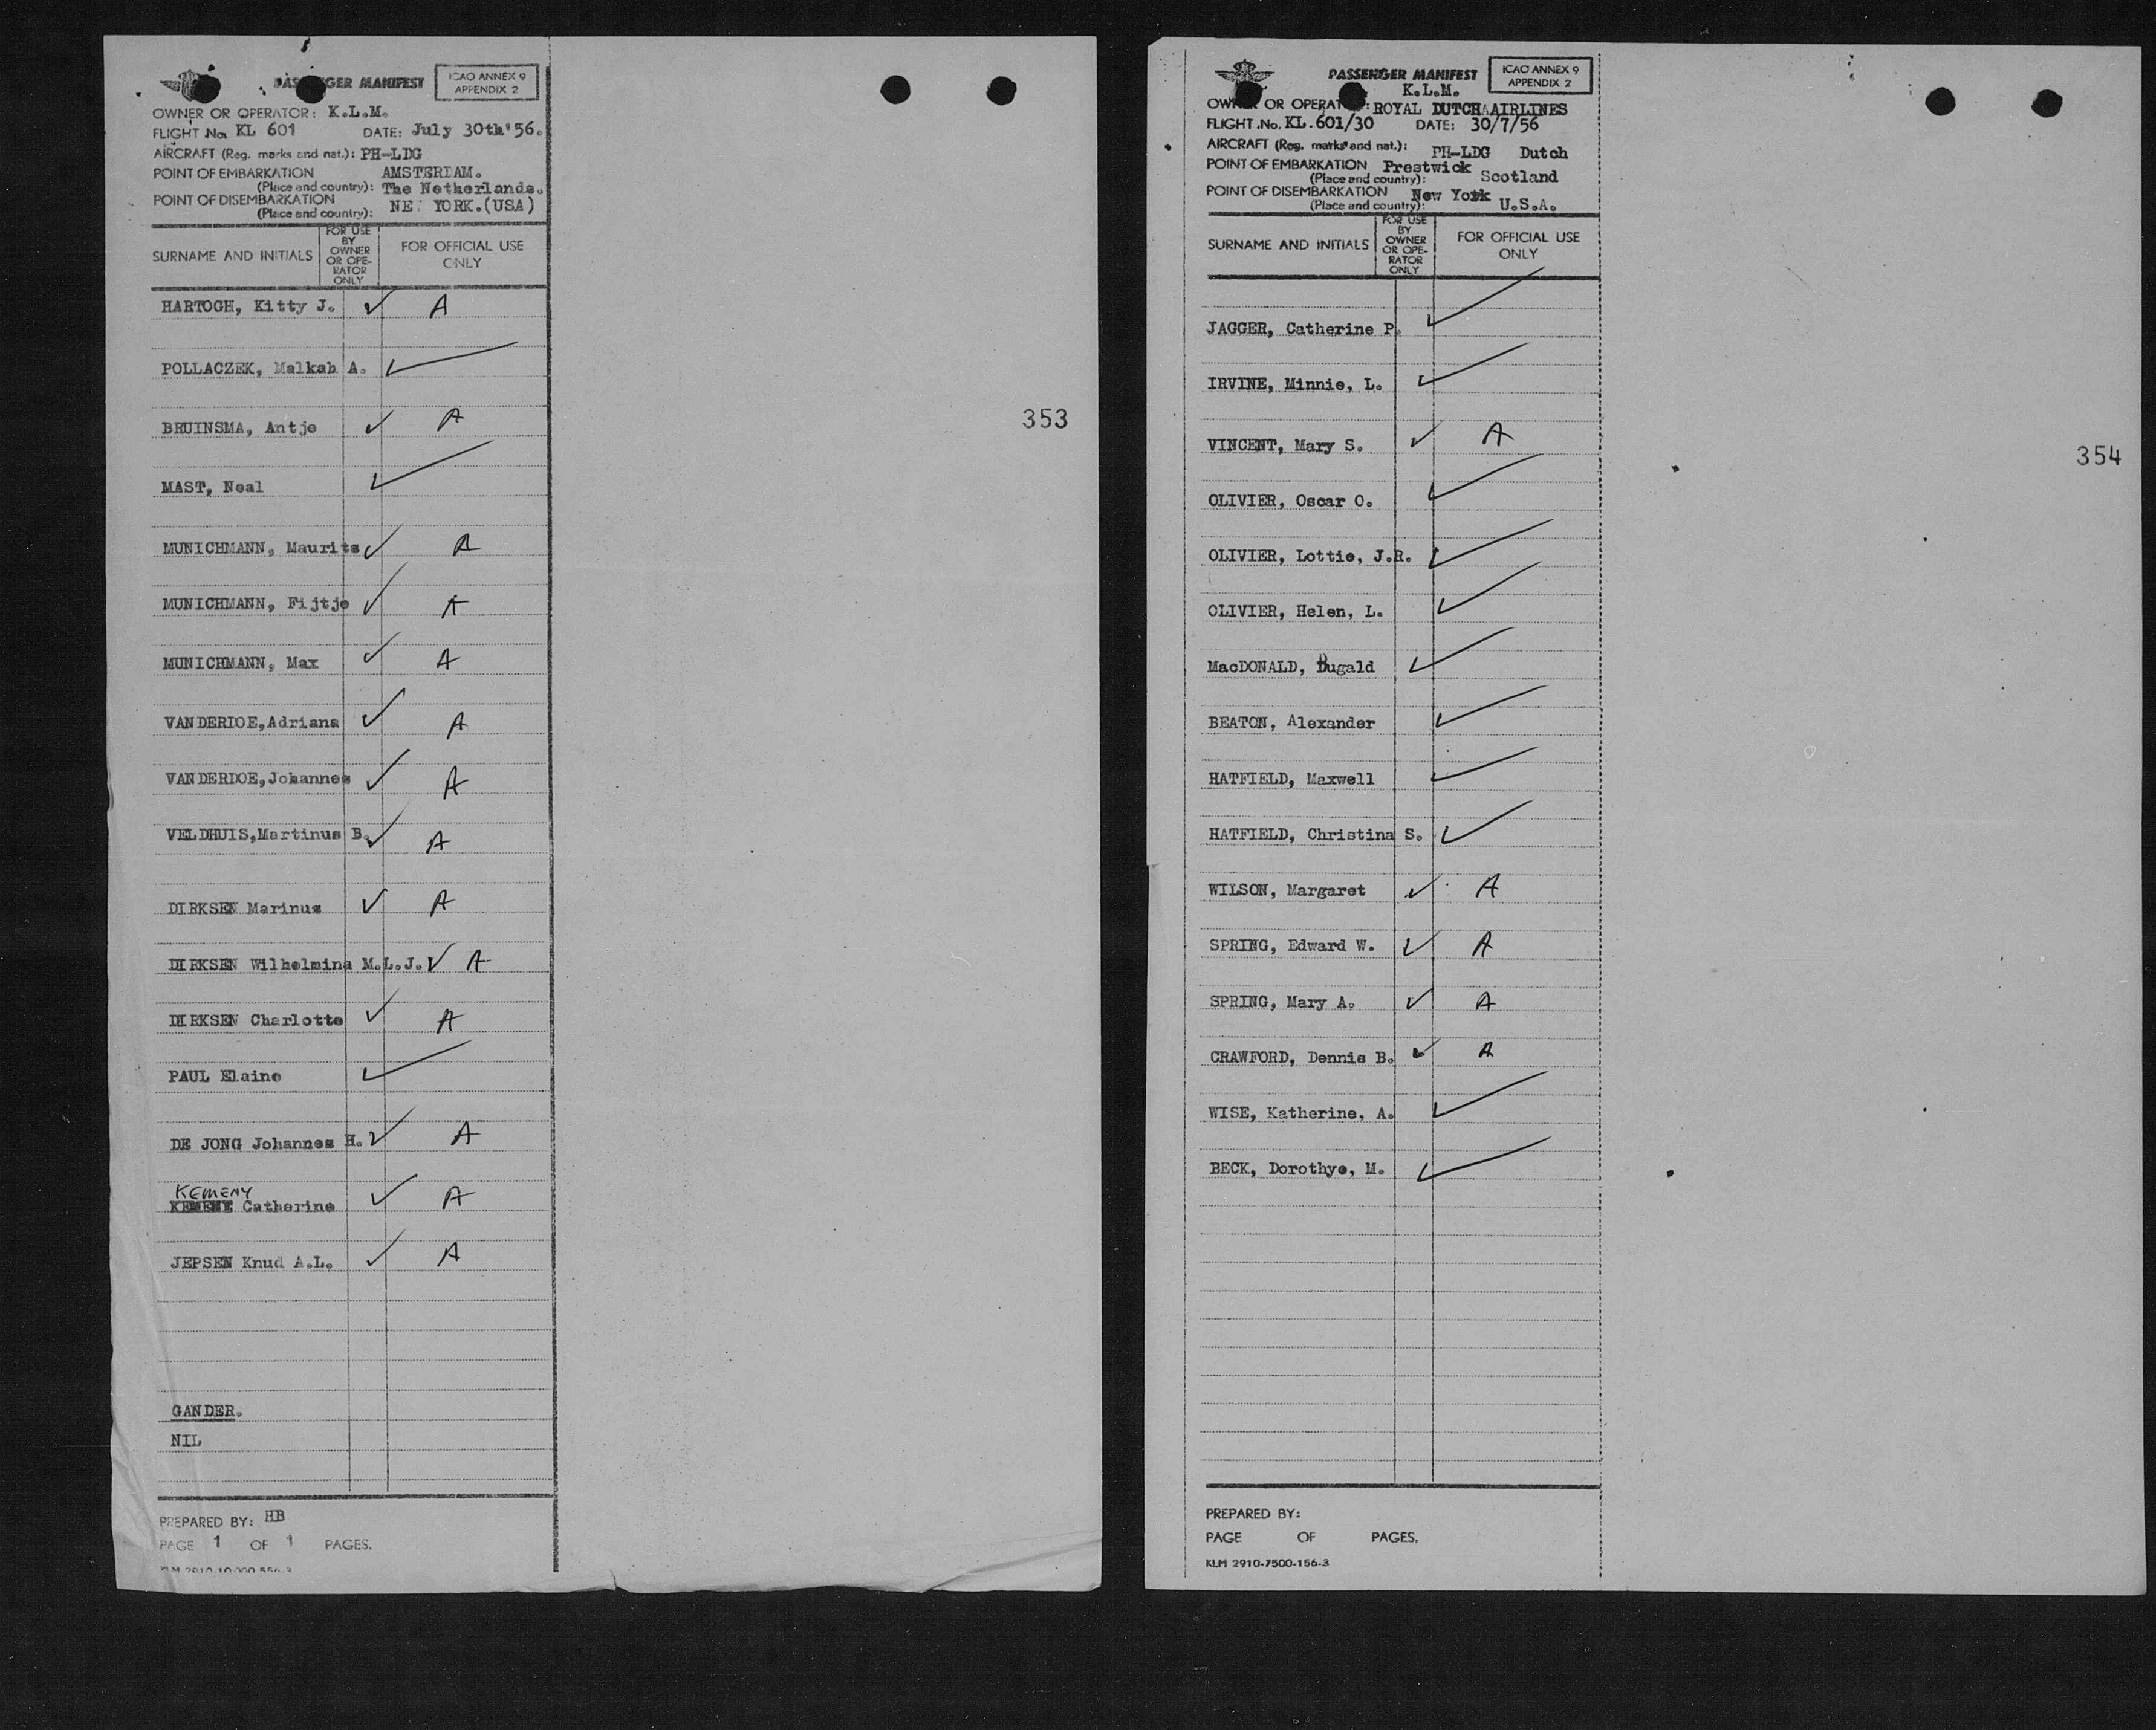 PASSENGER MANIFEST
ICAO ANNEX 9
APPENDIX 2
OWNER OR OPERATOR: K.L.M.
FLIGHT No. KL 601 DATE: July 30th'56.
AIRCRAFT (Reg. marks and nat.): PH-LDG
POINT OF EMBARKATION AMSTERDAM.
(Place and country): The Netherlands.
POINT OF DISEMBARKATION
(Place and country): NEW YORK.(USA)
SURNAME AND INITIALS
FOR USE BY OWNER OR OPE-RATOR ONLY
FOR OFFICIAL USE ONLY
HARTOGH, Kitty J. ✓ A
POLLACZEK, Malkah A. ✓
BRUINSMA, Antje ✓ A
MAST, Neal ✓
MUNICHMANN, Maurits ✓ A
MUNICHMANN, Fijtje ✓ A
MUNICHMANN, Max ✓ A
VANDERDOE,Adriana ✓ A
VANDERDOE,Johannes ✓ A
VELDHUIS,Martinus B. ✓ A
DIRKSEN Marinus ✓ A
DIRKSEN Wilhelmina M.L.J. ✓ A
DIRKSEN Charlotte ✓ A
PAUL Elaine ✓
DE JONG Johannes H. ✓ A
KEMENY
Catherine ✓ A
JEPSEN Knud A.L. ✓ A
GANDER.
NIL
PREPARED BY: HB
PAGE 1 OF 1 PAGES.
KLM 2910-10.000-556-3
353
PASSENGER MANIFEST
ICAO ANNEX 9
APPENDIX 2
K.L.M.
OWNER OR OPERATOR: ROYAL DUTCH AIRLINES
FLIGHT No. KL.601/30 DATE: 30/7/56
AIRCRAFT (Reg. marks and nat.): PH-LDG Dutch
POINT OF EMBARKATION Prestwick
(Place and country): Scotland
POINT OF DISEMBARKATION New York
(Place and country): U.S.A.
SURNAME AND INITIALS
FOR USE BY OWNER OR OPE-RATOR ONLY
FOR OFFICIAL USE ONLY
JAGGER, Catherine P. ✓
IRVINE, Minnie, L. ✓
VINCENT, Mary S. ✓ A
OLIVIER, Oscar O. ✓
OLIVIER, Lottie, J.R. ✓
OLIVIER, Helen, L. ✓
MacDONALD, Dugald ✓
BEATON, Alexander ✓
HATFIELD, Maxwell ✓
HATFIELD, Christina S. ✓
WILSON, Margaret ✓ A
SPRING, Edward W. ✓ A
SPRING, Mary A. ✓ A
CRAWFORD, Dennis B. ✓ A
WISE, Katherine, A. ✓
BECK, Dorothye, M. ✓
PREPARED BY:
PAGE OF PAGES.
KLM 2910-7500-156-3
354